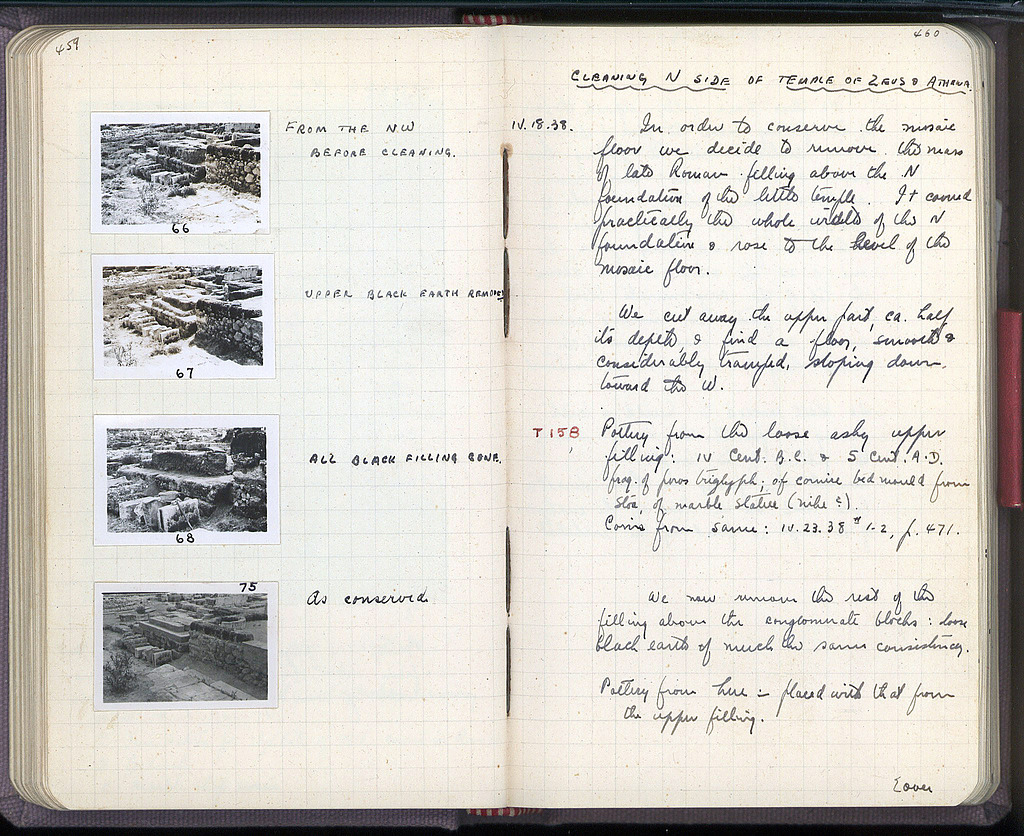 459
FROM THE NW
BEFORE CLEANING.
66
UPPER BLACK EARTH REMOVED
67
ALL BLACK FILLING GONE.
68
75
As conserved
460
CLEANING N SIDE OF TEMPLE OF ZEUS & ATHENA.
IV.18.38.
In order to conserve the mosaic
floor we decide to remove the mass
of late Roman filling above the N
foundation of the little temple. It covered
practically the whole width of the N
foundation & rose to the level of the
mosaic floor.
We cut away the upper part, ca. half
its depth, & find a floor, smooth &
considerably tramped, sloping down
toward the W.
T 158
Pottery from the loose ashy upper
filling: IV Cent. B.C. & 5 Cent. A.D.
frag. of poros triglyph; of cornice bed mould from
Stoa, of marble statue (Nike?).
Coins from same: IV.23.38 # 1-2, p. 471.
We now remove the rest of the
filling above the conglomerate blocks: loose
black earth of much the same consistency.
Pottery from here = placed with that from
the upper filling.
over